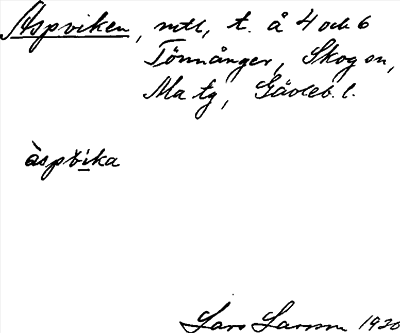 Aspviken, mtl, t. å 4 och 6
Tönnånger, Skogsn,
Ma tg, Gävleb. l.
àspvika
Lars Larsson 1920